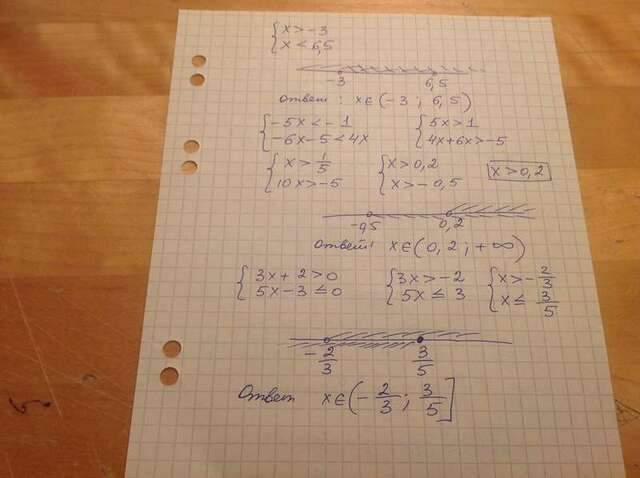 { x > -3
x < 6,5
-3 6,5
Ответ: x ∈ (-3 ; 6,5)
{ -5x < -1 { 5x > 1
-6x - 5 < 4x 4x + 6x > -5
{ x > 1/5 { x > 0,2 x > 0,2
10x > -5 x > -0,5
-0,5 0,2
Ответ: x ∈ (0,2 ; +∞)
{ 3x + 2 > 0 { 3x > -2 { x > -2/3
5x - 3 ≤ 0 5x ≤ 3 x ≤ 3/5
-2/3 3/5
Ответ x ∈ (-2/3 ; 3/5]